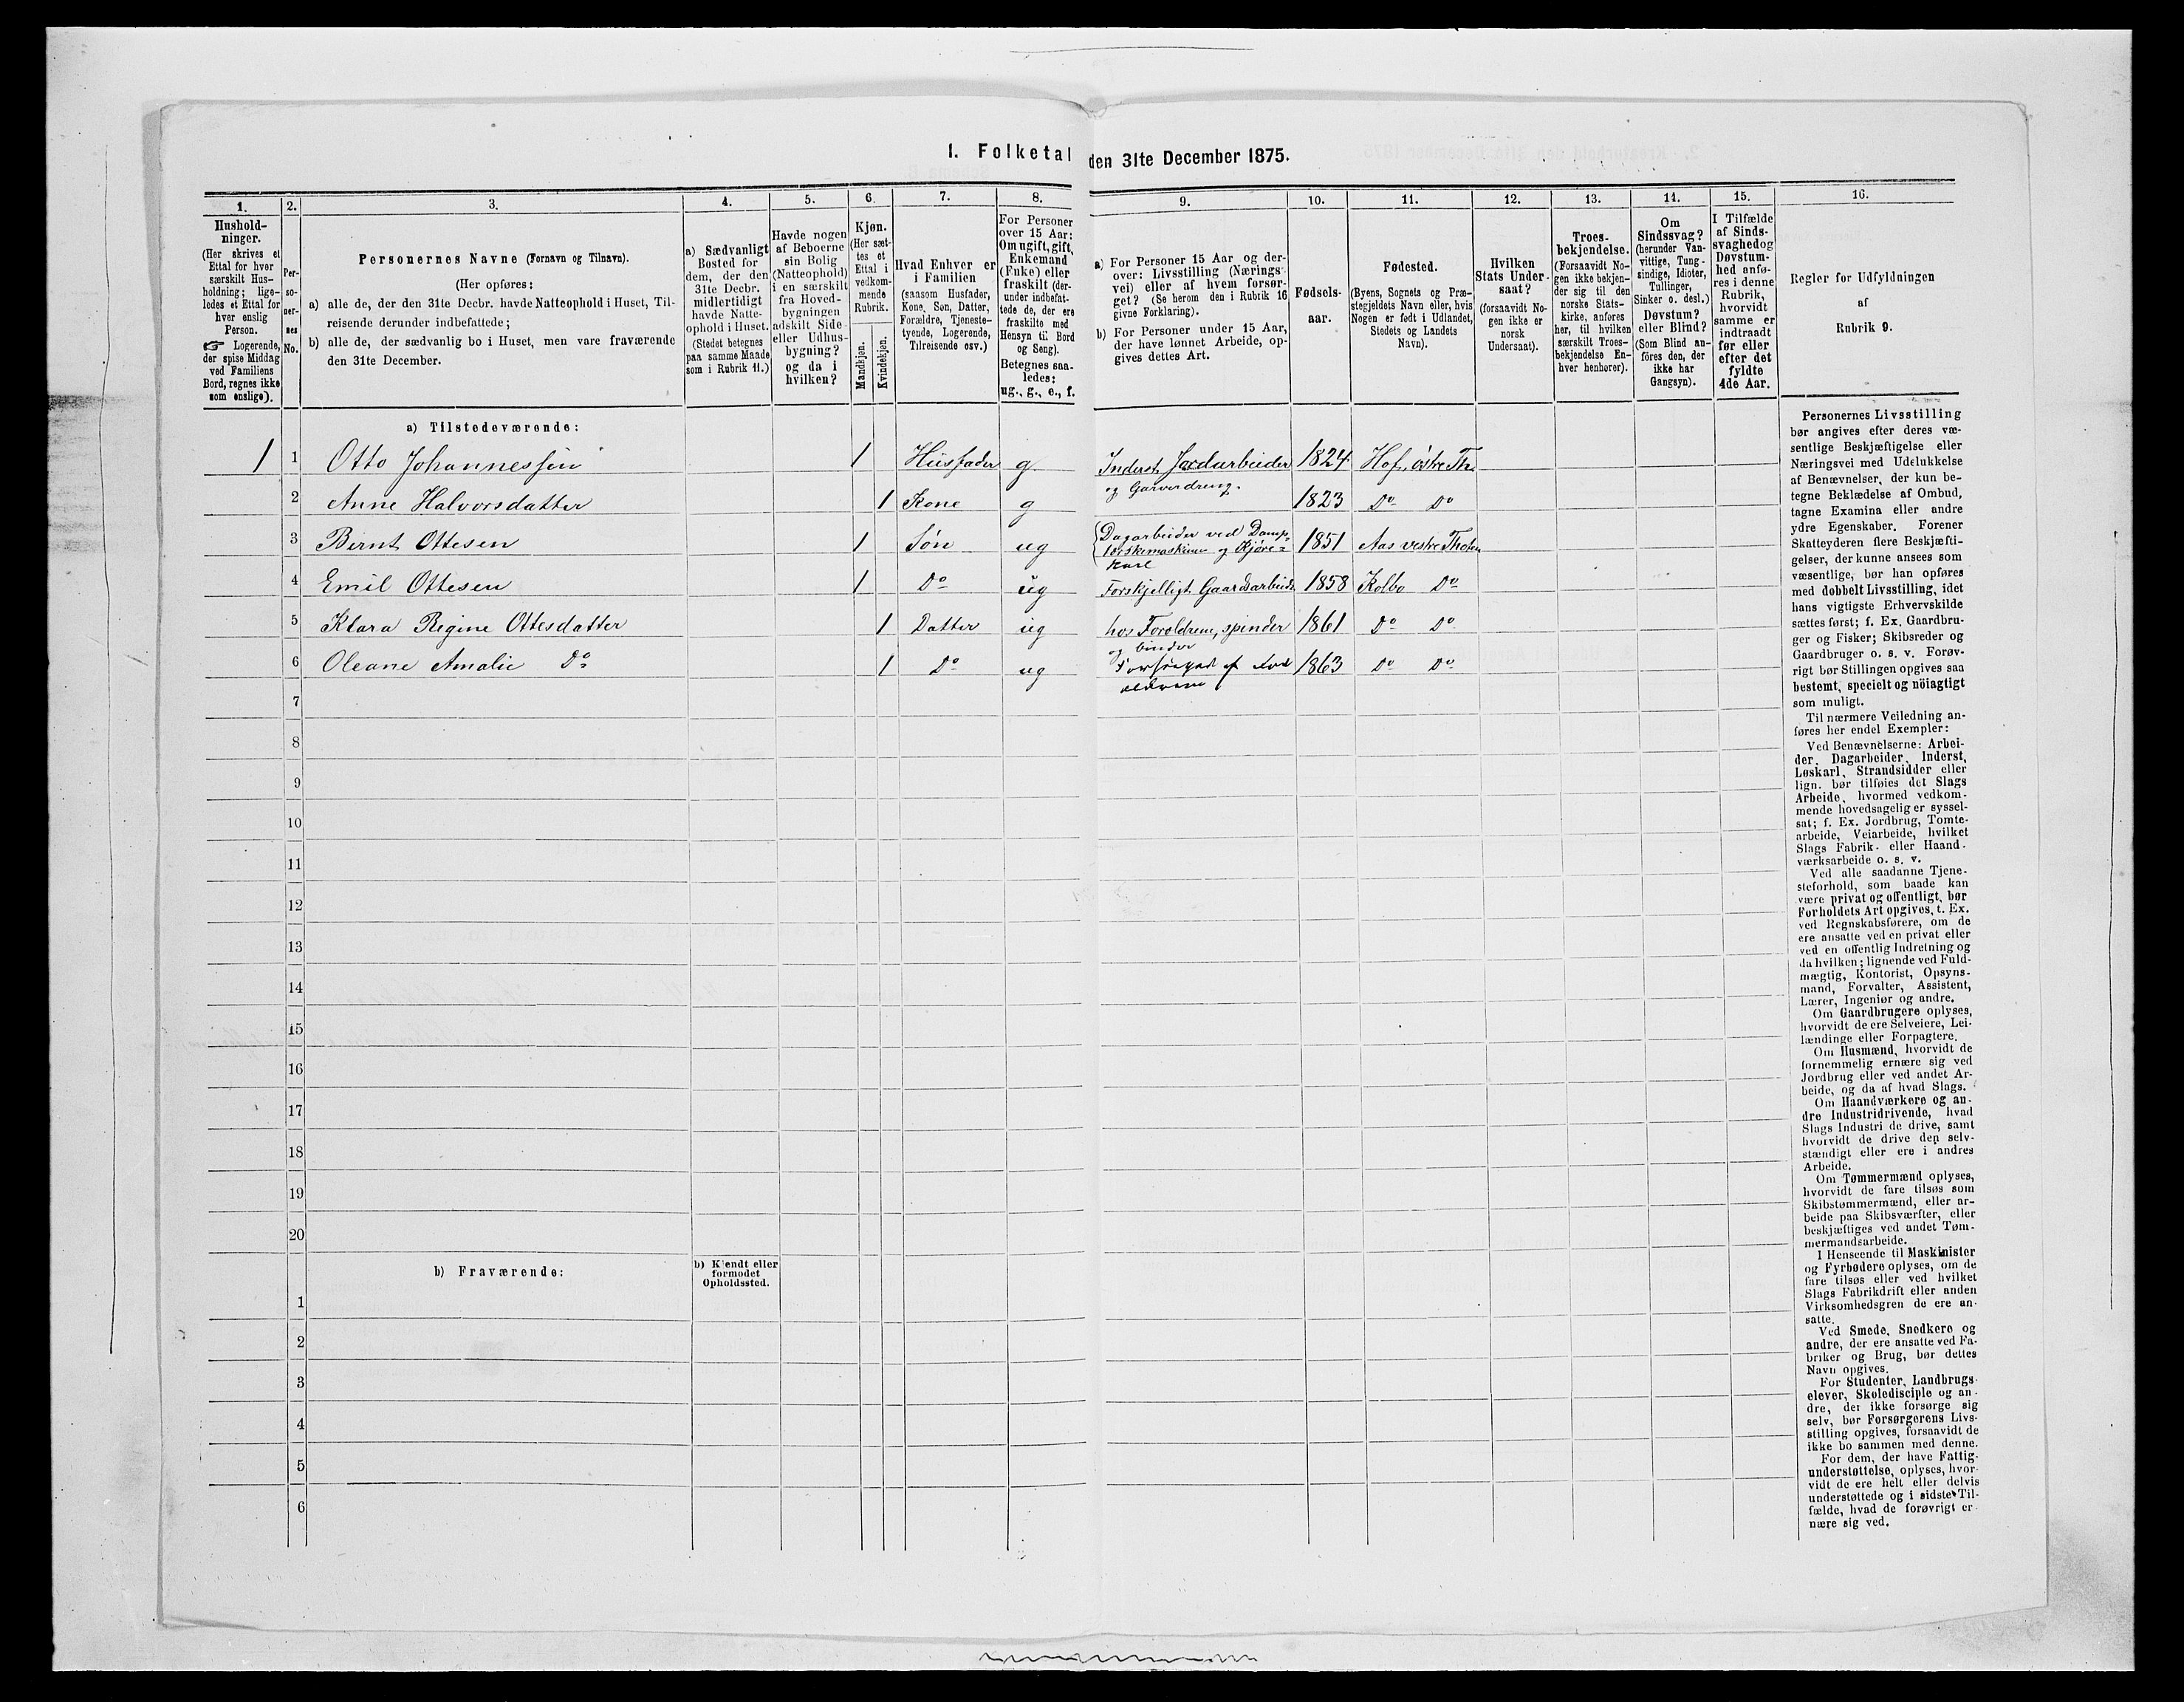 1. Folketal den 31te December 1875.
1.
Hushold-
ninger.
(Her skrives et
Ettal for hver
særskilt Hus-
holdning; lige-
ledes et Ettal for
hver enslig
Person.
☞ Logerende,
der spise Middag
ved Familiens
Bord, regnes ikke
som enslige).
2.
Per-
so-
ner-
nes
No.
3.
Personernes Navne (Fornavn og Tilnavn).
(Her opføres:
a) alle de, der den 31te Decbr. havde Natteophold i Huset, Til-
reisende derunder indbefattede;
b) alle de, der sædvanlig bo i Huset, men vare fraværende
den 31te December.
4.
a) Sædvanligt
Bosted for
dem, der den
31te Decbr.
midlertidigt
havde Natte-
ophold i Huset.
(Stedet betegnes
paa samme Maade
som i Rubrik 11.)
5.
Havde nogen
af Beboerne
sin Bolig
(Natteophold)
i en særskilt
fra Hoved-
bygningen
adskilt Side-
eller Udhus-
bygning?
og da i
hvilken?
6.
Kjøn.
(Her sæt-
tes et
Ettal i
vedkom-
mende
Rubrik.
Mandkjøn.
Kvindekjøn.
7.
Hvad Enhver er
i Familien
(saasom Husfader,
Kone, Søn, Datter,
Forældre, Tjeneste-
tyende, Logerende,
Tilreisende osv.)
8.
For Personer
over 15 Aar:
Om ugift, gift,
Enkemand
(Enke) eller
fraskilt (der-
under indbefat-
tede de, der ere
fraskilte med
Hensyn til Bord
og Seng).
Betegnes saa-
ledes:
ug., g., e., f.
9.
a) For Personer 15 Aar og der-
over: Livsstilling (Nærings-
vei) eller af hvem forsør-
get? (Se herom den i Rubrik 16
givne Forklaring).
b) For Personer under 15 Aar,
der have lønnet Arbeide, op-
gives dettes Art.
10.
Fødsels-
aar.
11.
Fødested.
(Byens, Sognets og Præ-
stegjeldets Navn eller, hvis
Nogen er født i Udlandet,
Stedets og Landets
Navn).
12.
Hvilken
Stats Under-
saat?
(forsaavidt No-
gen ikke er
norsk
Undersaat).
13.
Troes-
bekjendelse.
(Forsaavidt No-
gen ikke bekjen-
der sig til den
norske Stats-
kirke, anføres
her, til hvilken
særskilt Troes-
bekjendelse En-
hver henhører).
14.
Om
Sindssvag?
(herunder Van-
vittige, Tung-
sindige, Idioter,
Tullinger,
Sinker o. desl.)
Døvstum?
eller Blind?
(Som Blind an-
føres den, der
ikke har
Gangsyn).
15.
I Tilfælde
af Sinds-
svaghed og
Døvstum-
hed anfø-
res i denne
Rubrik,
hvorvidt
samme er
indtraadt
før eller
efter det
fyldte
4de Aar.
16.
Regler for Udfyldningen
af
Rubrik 9.
a) Tilstedeværende:
1 1 Otto Johannessen 1 Husfader g Inderst, Jordarbeider 1824 Hof, østre Th.
og Garverdreng.
2 Anne Halvorsdatter 1 Kone g 1823 Do Do
3 Bernt Ottesen 1 Søn ug Dagarbeider ved Damp- 1851 Aas vestre Thoten
tærskemaskine og Kjøre-
karl
4 Emil Ottesen 1 Do ug Forskjelligt Gaardsarbeide 1858 Kolbo Do
5 Klara Regine Ottesdatter 1 Datter ug hos Forældrene, spinder 1861 Do Do
og binder
6 Oleane Amalie Do 1 Do ug Forsørget af For 1863 Do Do
ældrene
7
8
9
10
11
12
13
14
15
16
17
18
19
20
b) Fraværende:
b) Kjendt eller
formodet
Opholdssted.
1
2
3
4
5
6
Personernes Livsstilling
bør angives efter deres væ-
sentlige Beskjæftigelse eller
Næringsvei med Udelukkelse
af Benævnelser, der kun be-
tegne Beklædelse af Ombud,
tagne Examina eller andre
ydre Egenskaber. Forener
Skatteyderen flere Beskjæfti-
gelser, der kunne ansees som
væsentlige, bør han opføres
med dobbelt Livsstilling, idet
hans vigtigste Erhvervskilde
sættes først; f. Ex. Gaardbru-
ger og Fisker; Skibsreder og
Gaardbruger o. s. v. Forøv-
rigt bør Stillingen opgives saa
bestemt, specielt og nöiagtigt
som muligt.
Til nærmere Veiledning an-
føres her endel Exempler:
Ved Benævnelserne: Arbei-
der, Dagarbeider, Inderst,
Løskarl, Strandsidder eller
lign. bør tilføies det Slags
Arbeide, hvormed vedkom-
mende hovedsagelig er syssel-
sat; f. Ex. Jordbrug, Tomte-
arbeide, Veiarbeide, hvilket
Slags Fabrik- eller Haand-
værksarbeide o. s. v.
Ved alle saadanne Tjene-
steforhold, som baade kan
være privat og offentligt, bør
Forholdets Art opgives, t. Ex.
ved Regnskabsførere, om de
ere ansatte ved en privat eller
ved en offentlig Indretning og
da hvilken; lignende ved Fuld-
mægtig, Kontorist, Opsyns-
mand, Forvalter, Assistent,
Lærer, Ingeniør og andre.
Om Gaardbrugere oplyses,
hvorvidt de ere Selveiere, Lei-
lændinge eller Forpagtere.
Om Husmænd, hvorvidt de
fornemmelig ernære sig ved
Jordbrug eller ved andet Ar-
beide, og da af hvad Slags.
Om Haandværkere og an-
dre Industridrivende, hvad
Slags Industri de drive, samt
hvorvidt de drive den selv-
stændigt eller ere i andres
Arbeide.
Om Tømmermænd oplyses,
hvorvidt de fare tilsøs som
Skibstømmermænd, eller ar-
beide paa Skibsværfter, eller
beskjæftiges ved andet Tøm-
mermandsarbeide.
I Henseende til Maskinister
og Fyrbødere oplyses, om de
fare tilsøs eller ved hvilket
Slags Fabrikdrift eller anden
Virksomhedsgren de ere an-
satte.
Ved Smede, Snedkere og
andre, der ere ansatte ved Fa-
briker og Brug, bør dettes
Navn opgives.
For Studenter, Landbrugs-
elever, Skoledisciple og an-
dre, der ikke forsørge sig
selv, bør Forsørgerens Livs-
stilling opgives, forsaavidt de
ikke bo sammen med denne.
For dem, der have Fattig-
understøttelse, oplyses, hvor-
vidt de ere helt eller delvis
understøttede og i sidste Til-
fælde, hvad de forøvrigt er-
nære sig ved.